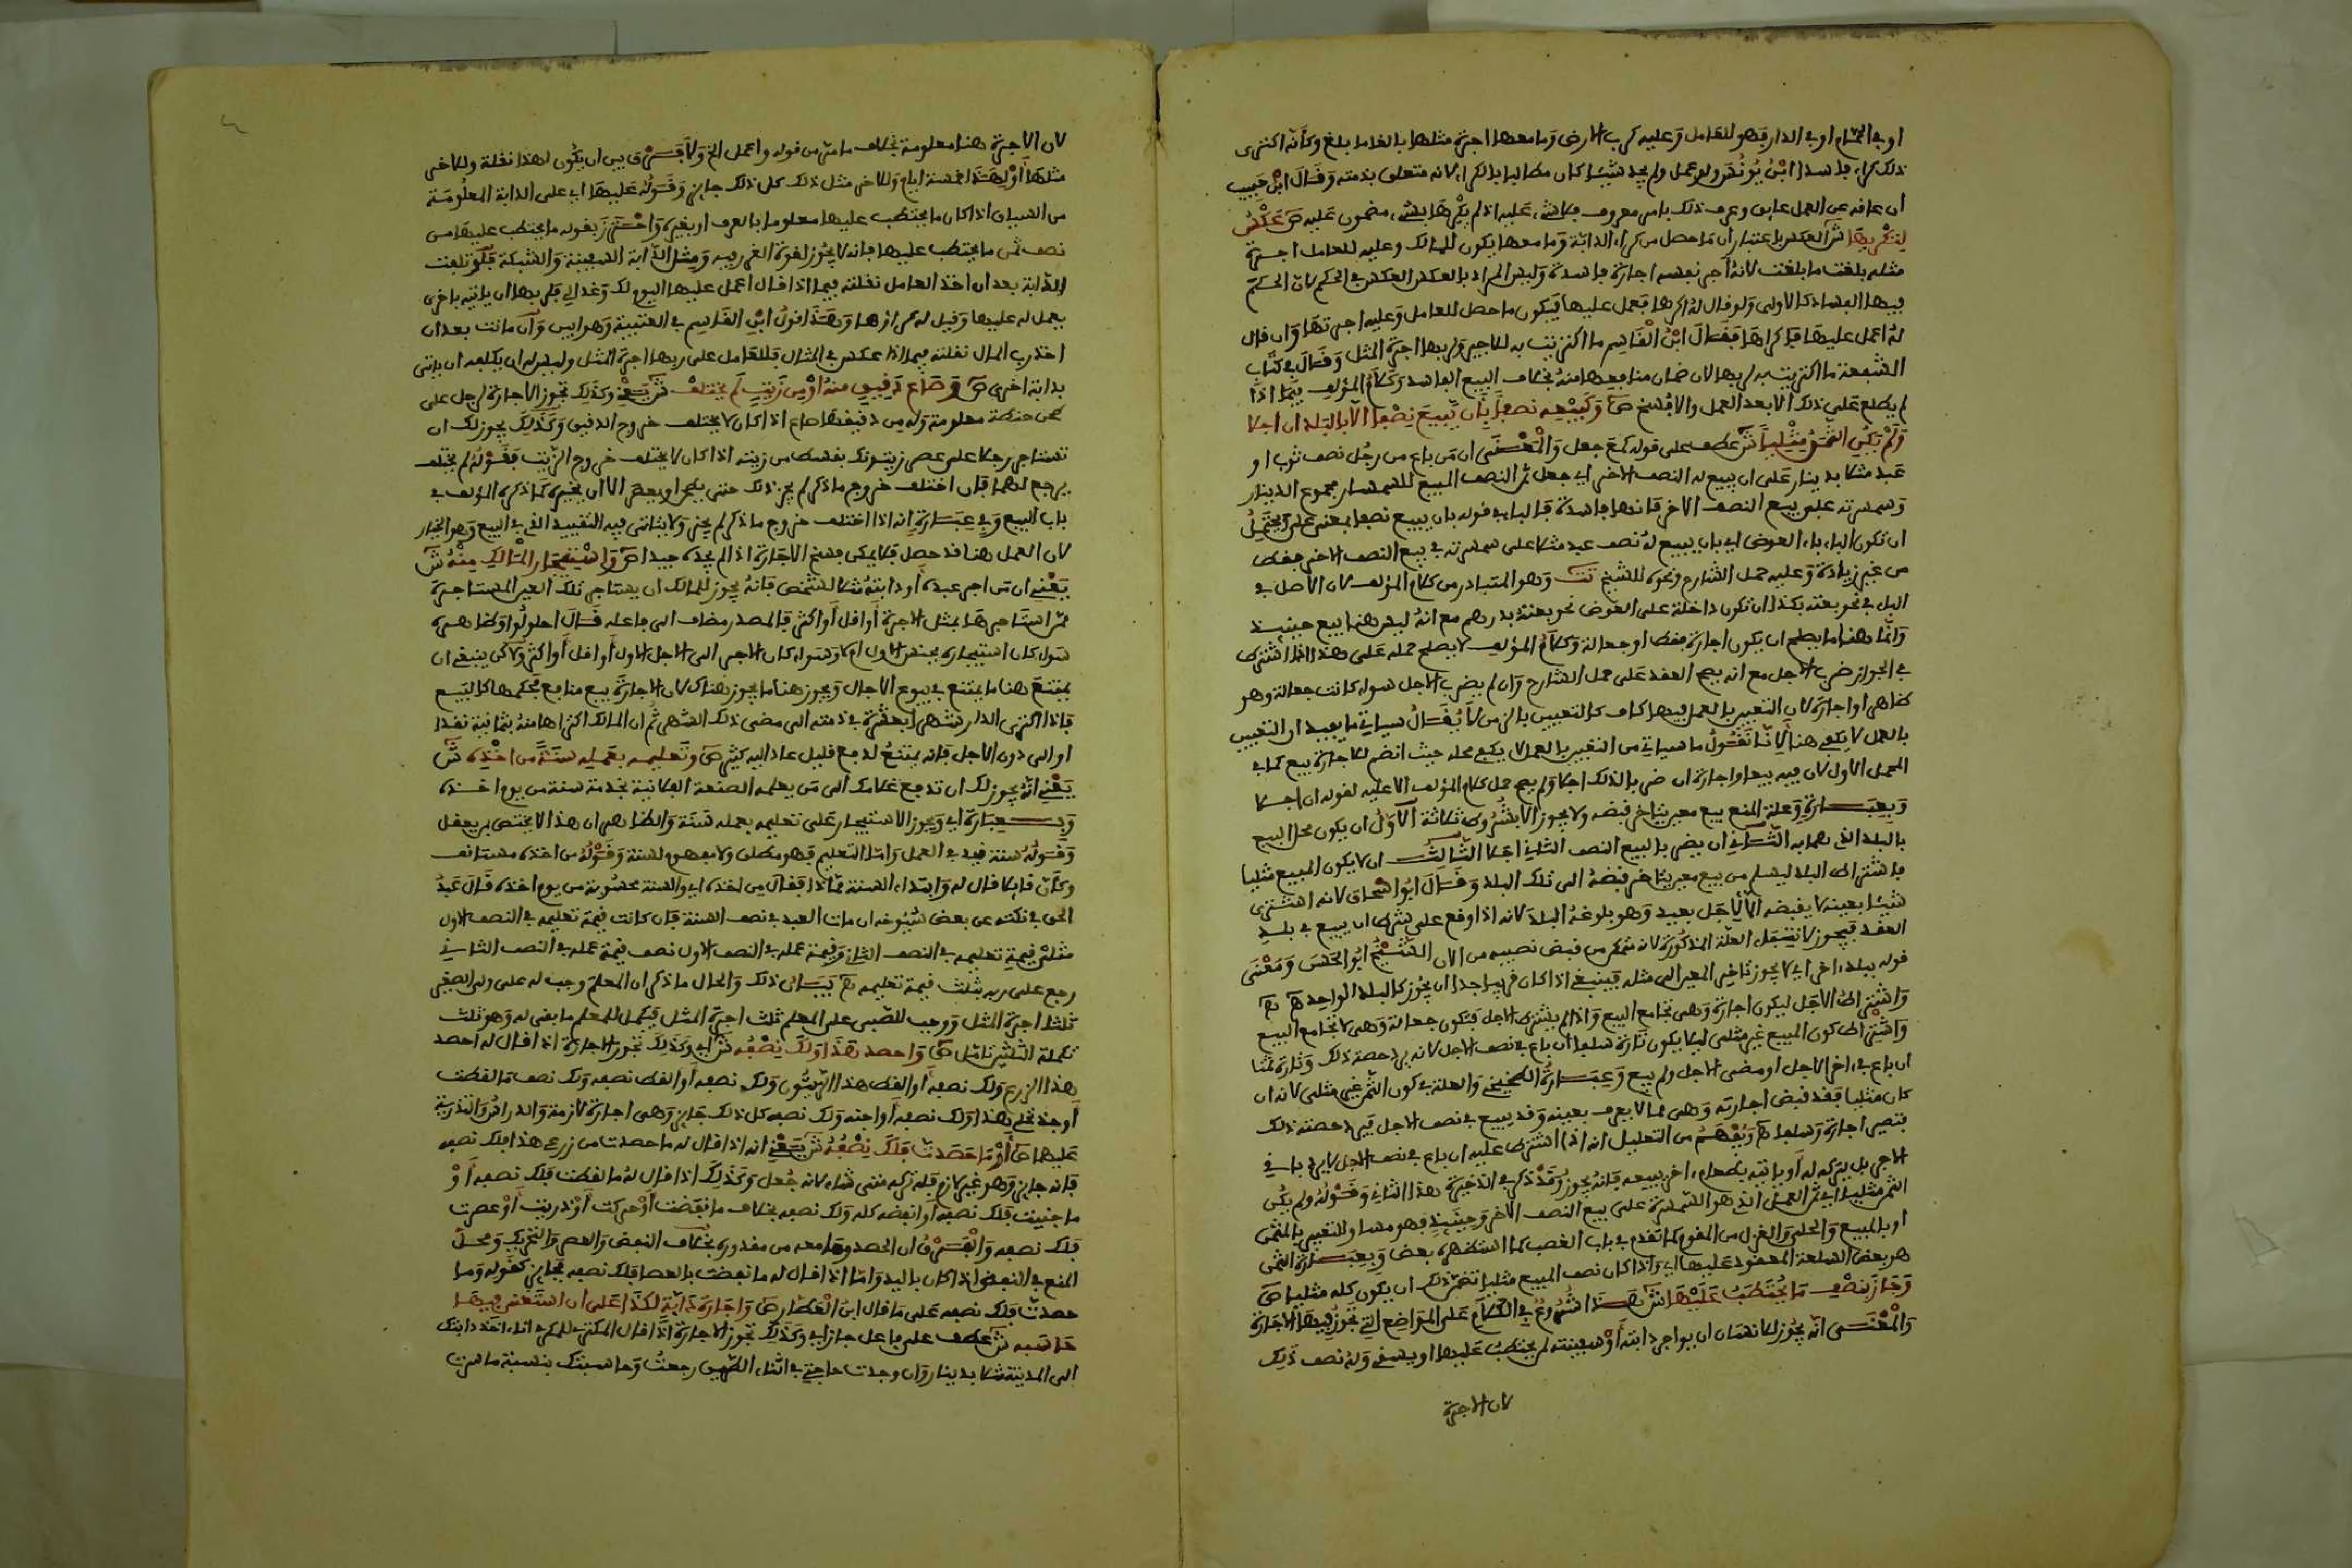 او في الحمام او في الدار فهو للعامل وعليه كرب الارض وما معها اجرة مثلها بالغا ما بلغ وكانه اكترى
ذلك كراء فاسدا ابن يونس ولو عمل ولم يجد شيئا كان مطالبا بالكراء لانه متعلق بذمته وقال ابن حبيب
ان عاقه عن العمل عايق وعرف ذلك بامر معروف فلا شيء عليه اذ لم يكرها بشيء مضمون عليه ص عكس
لتكريها ش العكس باعتبار ان ما حصل من كراء الدابة وما معها يكون للمالك وعليه للعامل اجرة
مثله بلغت ما بلغت لانه آجر نفسه اجارة فاسدة وليس المراد بالعكس العكس في الحكم لان الحكم
فيها الفساد كالاولى ولو قال له اكرها فعمل عليها فيكون ما حصل للعامل وعليه اجرتها وان قال
له اعمل عليها فاكراها فقال ابن القاسم ما اكتريت به للاجير ولربها اجرة المثل وقال في كتاب
الشفعة ما اكتريت به لربها لان ضمان منافعها منه بخلاف البيع الفاسد وكلام المؤلف فيما اذا
لم يطلع على ذلك الا بعد العمل والا فسخ ص وكبيعه نصفا بان يبيع نصفا الا بالبلد ان اجلا
ولم يكن الثمن مثليا ش عطف على قوله كمع جعل والمعنى ان من باع من رجل نصف ثوب او
عبد مثلا بدينار على ان يبيع له النصف الاخر اي جعل ثمن النصف المبيع للسمسار مجموع الدينار
وسمسرته على بيع النصف الاخر فانها فاسدة فالباء في قوله بان يبيع نصفا بمعنى على ويحتمل
ان تكون الباء باء العوض اي بان يبيع له نصف عبد مثلا على سمسرته في بيع النصف الاخر فقط
من غير زيادة وعليه حمل الشارح ونحوه للشيخ تت وهو المتبادر من كلام المؤلف لان الاصل في
الباء في نحو بعته بكذا ان تكون داخلة على العوض نحو بعته بدرهم مع انه ليس هنا بيع حينيذ
وانما هنا ما يصلح ان يكون اجارة فقط او جعالة وكلام المؤلف لا يصلح حمله على هذا اذا اشترط
في الجواز ضرب الاجل مع انه يصح العقد على حمل الشارح وان لم يضرب الاجل سواء كانت جعالة وهو
ظاهر او اجارة لان التعيين بالعمل فيها كاف كالتعيين بالزمن لا يقال سياتي ما يفيد ان التعيين
بالعمل لا يكفي هنا لانا نقول ما سياتي من التعيين بالعمل لا يكفي محله حيث انضم للاجارة بيع كما في
المحمل الاول لان فيه بيعا واجارة ان ضربا لذلك اجلا ولم يصح حمل كلام المؤلف الا عليه لقوله ان اجلا
وبعبارة وعلة المنع بيع معين يتاخر قبضه ولا يجوز الا بشروط ثلاثة الاول ان يكون محل البيع
بالبلد الذي هما به الثاني ان يضربا لبيع النصف الثاني اجلا الثالث ان لا يكون المبيع مثليا
فاشترط البلد ليسلم من بيع معين يتاخر قبضه الى تلك البلد وقال ابو اسحاق لانه اشترى
شيئا بعينه لا يقبضه الا لاجل بعيد وهو بلوغه البلد لانه اذا وقع على شرط ان يبيع في بلد
العقد فيجوز لانتفاء العلة المذكورة لانه متمكن من قبض نصيبه من الان الشيخ ابو الحسن ومعنى
قوله ببلد اخر اي لا يجوز تاخير المعين الى مثله فينبغي اذا كان قريبا جدا ان يجوز كالبلد الواحد هـ
واشترط الاجل ليكون اجارة وهي تجامع البيع واذا لم يشترط الاجل فتكون جعالة وهي لا تجامع البيع
واشترط كون المبيع غير مثلي ليلا يكون تارة سلفا ان باع في نصف الاجل لانه يرد حصة ذلك وتارة ثمنا
ان باع في اخر الاجل او مضى الاجل ولم يبع وعبارة الطخيخي والعلة في كون الثمن غير مثلي لانه ان
كان مثليا فقد قبض اجارته وهي مما لا يعرف بعينه وقد يبيع في نصف الاجل فيرد حصته ذلك
فتصير اجارة وسلفا هـ ويفهم من التعليل انه اذا اشترط عليه ان باع في نصف الاجل لا يرد باقي
الاجر بل يتركه له او ياتيه بطعام اخر يبيعه فانه يجوز وقد ذكر في الذخيرة هذا الثاني وقوله ولم يكن
الثمن مثليا اي ثمن العمل الذي هو السمسرة على بيع النصف الاخر وحينيذ فهو مساو للتعيين بالمثمن
او بالمبيع والحلي والغزل من المقوم كما تقدم في باب الغصب كما استظهره بعض وبعبارة الثمن
هو بعض السلعة المعقود عليها اي واذا كان نصف المبيع مثليا تضمن ذلك ان يكون كله مثليا ص
وجاز بنصف ما يحتطب عليها ش هذا شروع في الكلام على المواضع التي تجوز فيها الاجارة
والمعنى انه يجوز للانسان ان يواجر دابته او سفينته لمن يحتطب عليها او يسقي وله نصف ذلك
لان الاجرة
لان الاجرة هنا معلومة بخلاف ما مر من قوله واعمل الخ ولا فرق بين ان يكون لهذا نقلة وللاخر
مثلها او لهذا خمسة ايام وللاخر مثل ذلك كل ذلك جايز وقوله عليها اي على الدابة المعلومة
من السياق اذا كان ما يحتطب عليها معلوما بالعرف او بغيره واحترز بقوله ما يحتطب عليها من
نصف ثمن ما يحتطب عليها فانه لا يجوز لقوة الغرر فيه ومثل الدابة السفينة والشبكة فلو تلفت
الدابة بعد ان اخذ العامل نقلته فيما اذا قال اعمل عليها اليوم لك وغدا لي فلربها ان ياتيه باخرى
يعمل له عليها وقيل له كراؤها وهذا قول ابن القاسم في العتبية وهو ابين وان ماتت بعد ان
اخذ رب المال نقلته فيما اذا عكس في المثال فللعامل على ربها اجرة المثل وليس له ان يكلفه ان ياتي
بدابة اخرى ص وصاع دقيق منه او من زيت لم يختلف ش يعني وكذلك تجوز الاجارة لرجل على
طحن حنطة معلومة وله من دقيقها صاع اذا كان لا يختلف خروج الدقيق وكذلك يجوز لك ان
تستاجر رجلا على عصر زيتونك بقسط من زيته اذا كان لا يختلف خروج الزيت فقوله لم يختلف
يرجع لهما فان اختلف خروج ما ذكر لم يجز ذلك حتى يطحن او يعصر الا ان يخيره كما ذكره المؤلف في
باب البيع وفي عبارة انه اذا اختلف خروج ما ذكر لم يجز ولا يتاتى فيه التقييد الذي في البيع وهو الخيار
لان العمل هنا قد حصل فلا يمكن فسخ الاجارة اذا لم يجده جيدا ص واستيجار المالك منه ش
يعني ان من آجر عبده او دابته مثلا لشخص فانه يجوز للمالك ان يستاجر تلك العين المستاجرة
ممن استاجرها بمثل الاجرة او اقل او اكثر فالمصدر مضاف الى فاعله قال احلولوا وظاهره
سواء كان استيجاره بجنس الاول ام لا وسواء كان الاجر الى الاجل الاول او اقل او اكثر ولاكن ينبغي ان
يمتنع هنا ما يمتنع في بيوع الاجال ويجوز هنا ما يجوز هناك لان الاجارة بيع منافع فحكمها كالبيع
فاذا اكترى الدار شهرا بعشرة في ذمته الى مضي ذلك الشهر ثم ان المالك اكتراها منه بثمانية نقدا
او الى دون الاجل فانه يمتنع لدفع قليل عاد اليه كثير ص وتعليمه بعمله سنة من اخذه ش
يعني انه يجوز لك ان تدفع غلامك الى من يعلمه الصنعة الفلانية بخدمة سنة من يوم اخذه
وبعبارة اي ويجوز الاستيجار على تعليمه بعمله سنة والظاهر ان هذا لا يختص بمن يعقل
وقوله سنة قيد في العمل واما التعليم فهو مطلق ولا مفهوم لسنة وقوله من اخذه مستانف
وكان قايلا قال له وابتداء السنة مماذا فقال من اخذه اي والسنة محسوبة من يوم اخذه قال عبد
الحق في نكته عن بعض شيوخه ان مات العبد في نصف السنة فان كانت قيمة تعليمه في النصف الاول
مثلي قيمة تعليمه في النصف الثاني وقيمة عمله في النصف الاول نصف قيمة عمله في النصف الثاني
رجع على ربه بثلث قيمة تعليمه هـ بيان ذلك والحال ما ذكر ان المعلم وجب له على ولي الصغير
ثلثا اجرة المثل ووجب للصبي على المعلم ثلث اجرة المثل فيكمل للمعلم ما بقي له وهو ثلث
تكملة الثلثين تامل ص واحصد هذا ولك نصفه ش اي وكذلك تجوز الاجارة اذا قال له احصد
هذا الزرع ولك نصفه او القط هذا الزيتون ولك نصفه او القط نصفه ولك نصف ما لقطت
او جذ نخلي هذا ولك نصفه او اجنه ولك نصفه كل ذلك جايز وهي اجارة لازمة والدراس والتذرية
عليهما ص او ما حصدت فلك نصفه ش يعني انه اذا قال له ما حصدت من زرعي هذا فلك نصفه
فانه جايز وهو غير لازم فله تركه متى شاء لانه جعل وكذلك اذا قال له ما لقطت فلك نصفه او
ما جنيت فلك نصفه او انفضه كله ولك نصفه بخلاف ما نفضت او حركت او ذريت او عصرت
فلك نصفه والفرق ان الحصد وما معه من مقدوره بخلاف النفض والعصر والتحريك ومحل
المنع في النفض اذا كان باليد واما اذا قال له ما نفضت بالعصا فلك نصفه فجايز كقوله وما
حصدت فلك نصفه على ما قال ابن العطار ص واجارة دابة لكذا على ان استغنى فيها
حاسبه ش عطف على فاعل جاز اي وكذلك تجوز الاجارة اذا قال المكتري للمكري انا اخذ دابتك
الى المدينة مثلا بدينار وان وجدت حاجتي في اثناء الطريق رجعت وحاسبتك بنسبة ما سرت